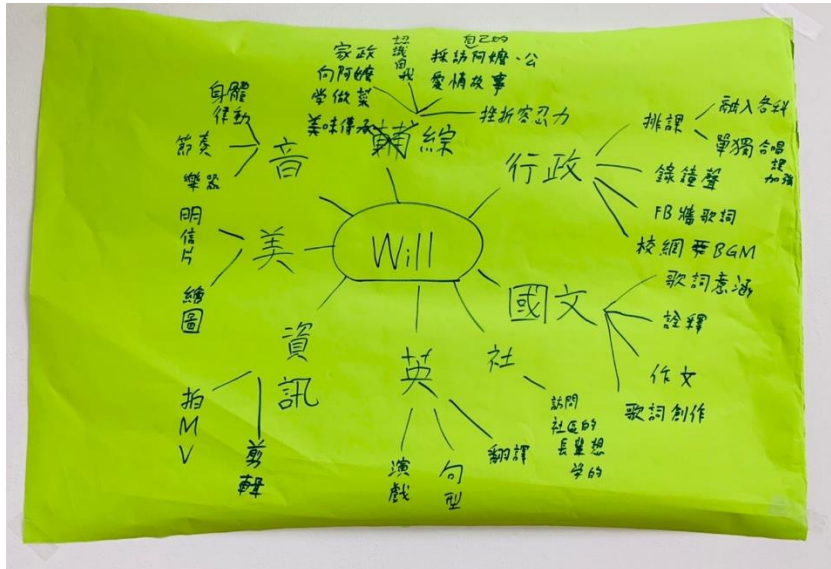 Will
輔綜
家政
向阿嬤
學做菜
美味傳承
認識自我
自己的
採訪阿嬤、公
愛情故事
挫折容忍力
行政
排課
融入各科
單獨合唱
課
加強
錄鐘聲
FB牆歌詞
校網BGM
國文
歌詞意涵
詮釋
作文
歌詞創作
社
訪問
社區的
長輩想
學的
英
翻譯
句型
演戲
資訊
剪輯
拍MV
美
明信片
繪圖
音
身體
律動
節奏
樂器